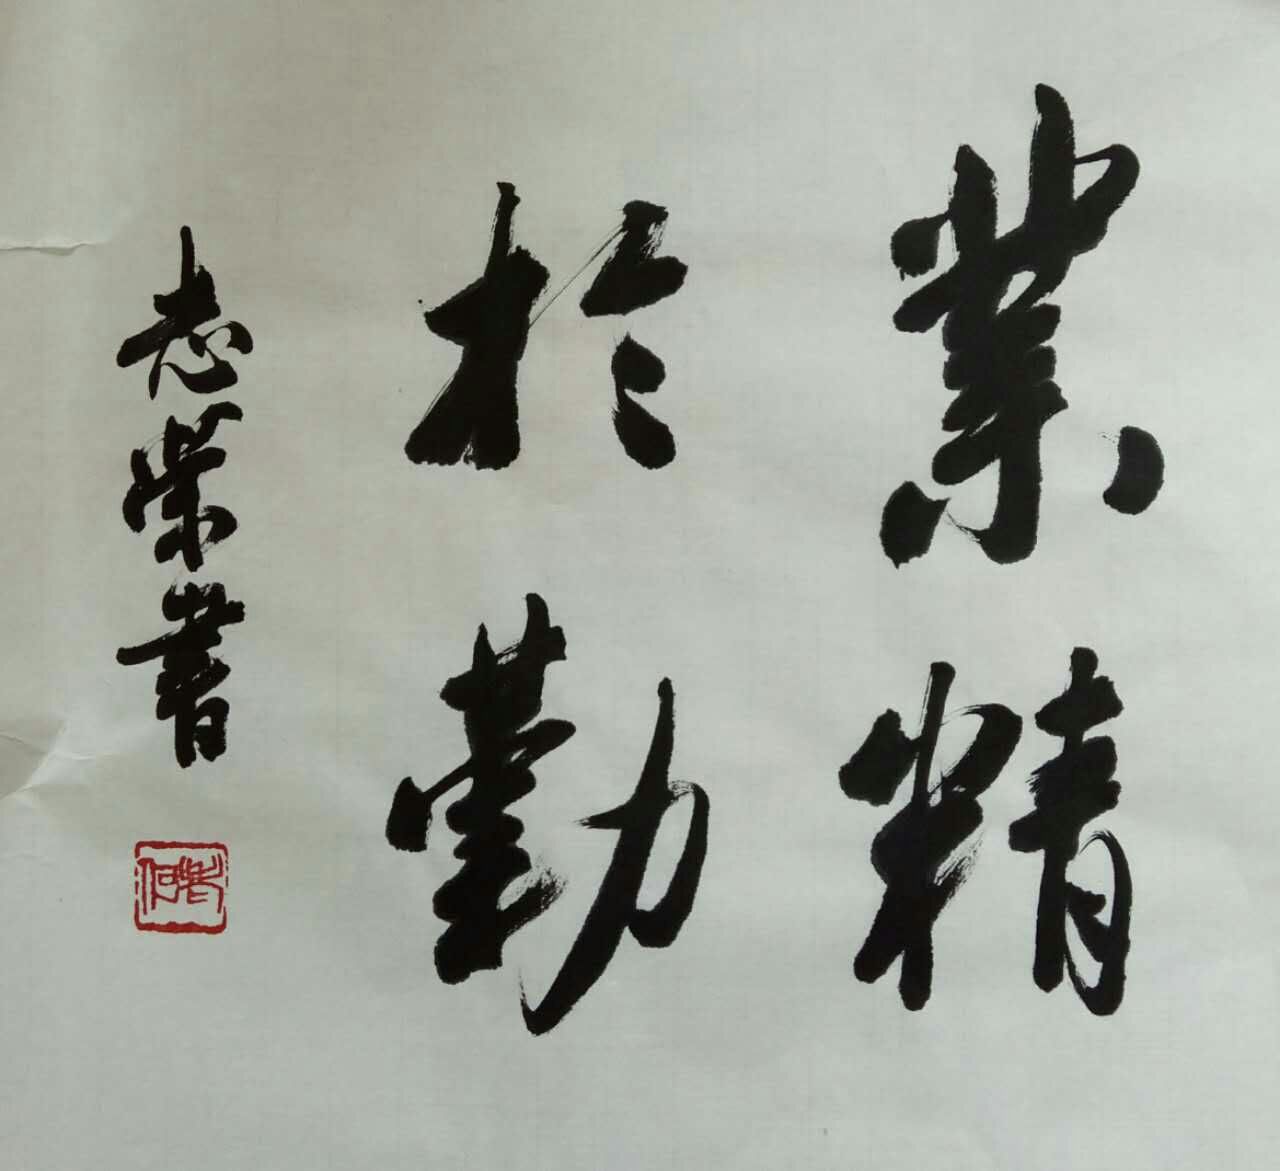 業精
於勤
志榮書